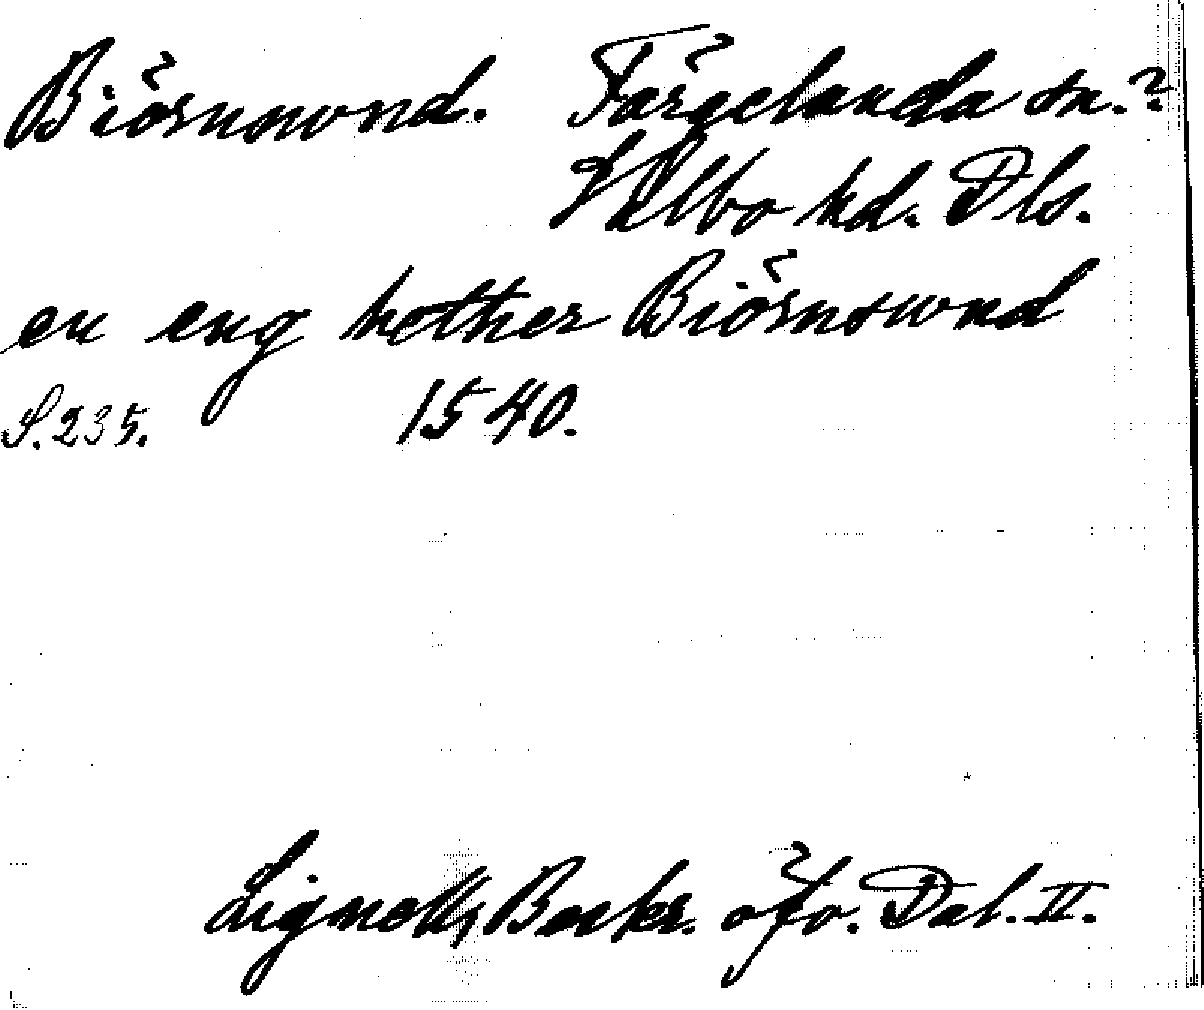 Biörnswnd. Färgelanda sn.?
Valbo hd. Dls.
en eng hether Biörnswnd
S. 235. 1540.
Lignell, Beskr. öfv. Dal. II.